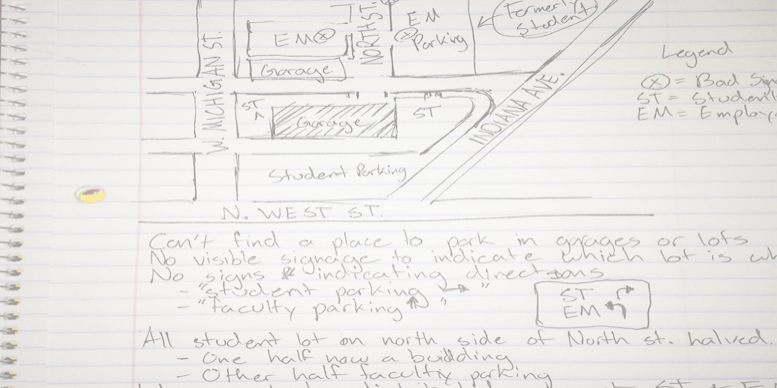 Formerly
Student
NORTH ST.
EM
Parking
EM
Garage
W. MICHIGAN ST.
Legend
= Bad
ST = Student
EM =
ST
Garage
ST
INDIANA AVE.
Student Parking
N. WEST ST.
Can't find a place to park in garages or lots
No visible signage to indicate which lot is
No signs indicating directions
- "student parking → "
- "faculty parking ↑ "
ST
EM
All student lot on north side of North st. halved.
- One half now a building
- Other half faculty parking